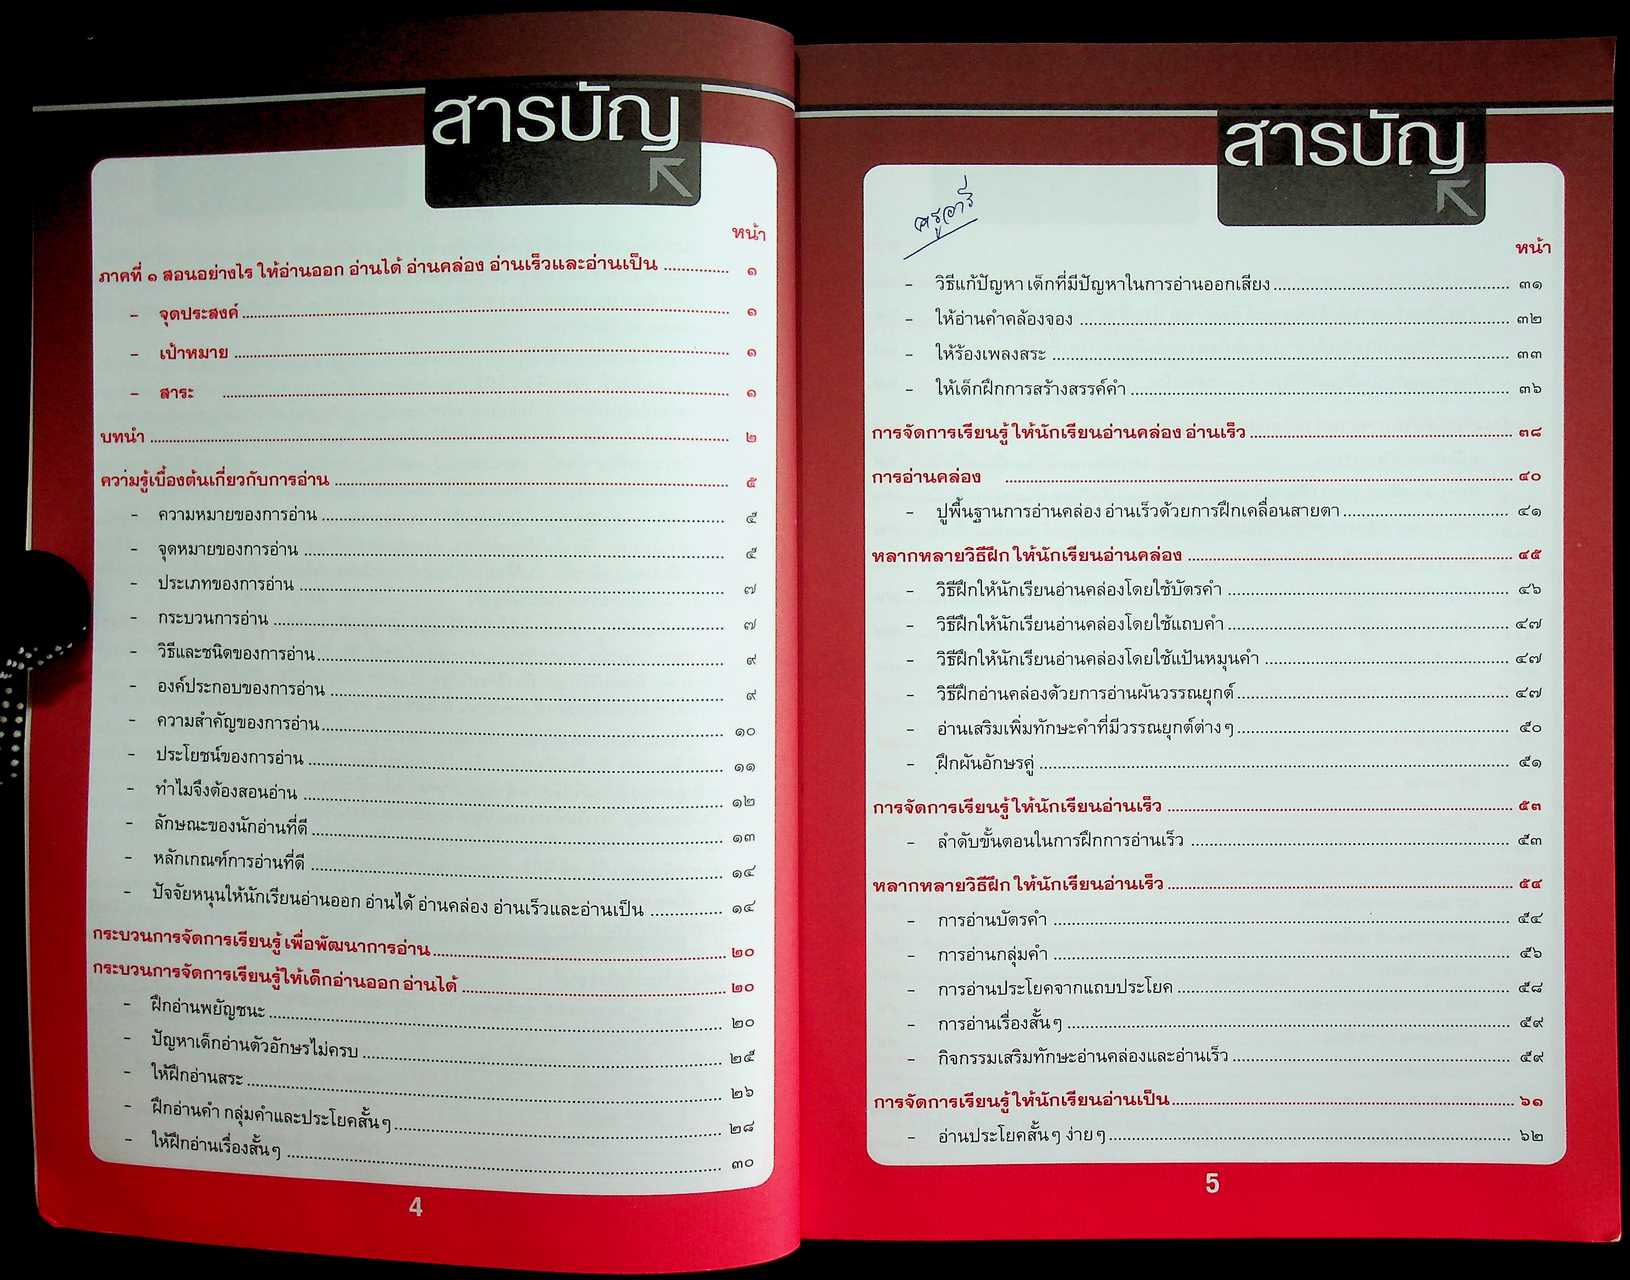 สารบัญ
หน้า
ภาคที่ ๑ สอนอย่างไร ให้อ่านออก อ่านได้ อ่านคล่อง อ่านเร็วและอ่านเป็น ............. ๑
- จุดประสงค์ ............. ๑
- เป้าหมาย ............. ๑
- สาระ ............. ๑
บทนำ ............. ๒
ความรู้เบื้องต้นเกี่ยวกับการอ่าน ............. ๕
- ความหมายของการอ่าน ............. ๕
- จุดหมายของการอ่าน ............. ๕
- ประเภทของการอ่าน ............. ๗
- กระบวนการอ่าน ............. ๗
- วิธีและชนิดของการอ่าน ............. ๙
- องค์ประกอบของการอ่าน ............. ๙
- ความสำคัญของการอ่าน ............. ๑๐
- ประโยชน์ของการอ่าน ............. ๑๑
- ทำไมจึงต้องสอนอ่าน ............. ๑๒
- ลักษณะของนักอ่านที่ดี ............. ๑๓
- หลักเกณฑ์การอ่านที่ดี ............. ๑๔
- ปัจจัยหนุนให้นักเรียนอ่านออก อ่านได้ อ่านคล่อง อ่านเร็วและอ่านเป็น ............. ๑๔
กระบวนการจัดการเรียนรู้ เพื่อพัฒนาการอ่าน ............. ๒๐
กระบวนการจัดการเรียนรู้ให้เด็กอ่านออก อ่านได้ ............. ๒๐
- ฝึกอ่านพยัญชนะ ............. ๒๐
- ปัญหาเด็กอ่านตัวอักษรไม่ครบ ............. ๒๕
- ให้ฝึกอ่านสระ ............. ๒๖
- ฝึกอ่านคำ กลุ่มคำและประโยคสั้น ๆ ............. ๒๘
- ให้ฝึกอ่านเรื่องสั้น ๆ ............. ๓๐
4
สารบัญ
ครูอารี
หน้า
- วิธีแก้ปัญหา เด็กที่มีปัญหาในการอ่านออกเสียง ............. ๓๑
- ให้อ่านคำคล้องจอง ............. ๓๒
- ให้ร้องเพลงสระ ............. ๓๓
- ให้เด็กฝึกการสร้างสรรค์คำ ............. ๓๖
การจัดการเรียนรู้ ให้นักเรียนอ่านคล่อง อ่านเร็ว ............. ๓๘
การอ่านคล่อง ............. ๔๐
- ปูพื้นฐานการอ่านคล่อง อ่านเร็วด้วยการฝึกเคลื่อนสายตา ............. ๔๑
หลากหลายวิธีฝึก ให้นักเรียนอ่านคล่อง ............. ๔๕
- วิธีฝึกให้นักเรียนอ่านคล่องโดยใช้บัตรคำ ............. ๔๖
- วิธีฝึกให้นักเรียนอ่านคล่องโดยใช้แถบคำ ............. ๔๗
- วิธีฝึกให้นักเรียนอ่านคล่องโดยใช้แป้นหมุนคำ ............. ๔๗
- วิธีฝึกอ่านคล่องด้วยการอ่านผันวรรณยุกต์ ............. ๔๗
- อ่านเสริมเพิ่มทักษะคำที่มีวรรณยุกต์ต่าง ๆ ............. ๕๐
- ฝึกผันอักษรคู่ ............. ๕๑
การจัดการเรียนรู้ ให้นักเรียนอ่านเร็ว ............. ๕๓
- ลำดับขั้นตอนในการฝึกการอ่านเร็ว ............. ๕๓
หลากหลายวิธีฝึก ให้นักเรียนอ่านเร็ว ............. ๕๔
- การอ่านบัตรคำ ............. ๕๔
- การอ่านกลุ่มคำ ............. ๕๖
- การอ่านประโยคจากแถบประโยค ............. ๕๘
- การอ่านเรื่องสั้น ๆ ............. ๕๙
- กิจกรรมเสริมทักษะอ่านคล่องและอ่านเร็ว ............. ๕๙
การจัดการเรียนรู้ ให้นักเรียนอ่านเป็น ............. ๖๑
- อ่านประโยคสั้น ๆ ง่าย ๆ ............. ๖๒
5